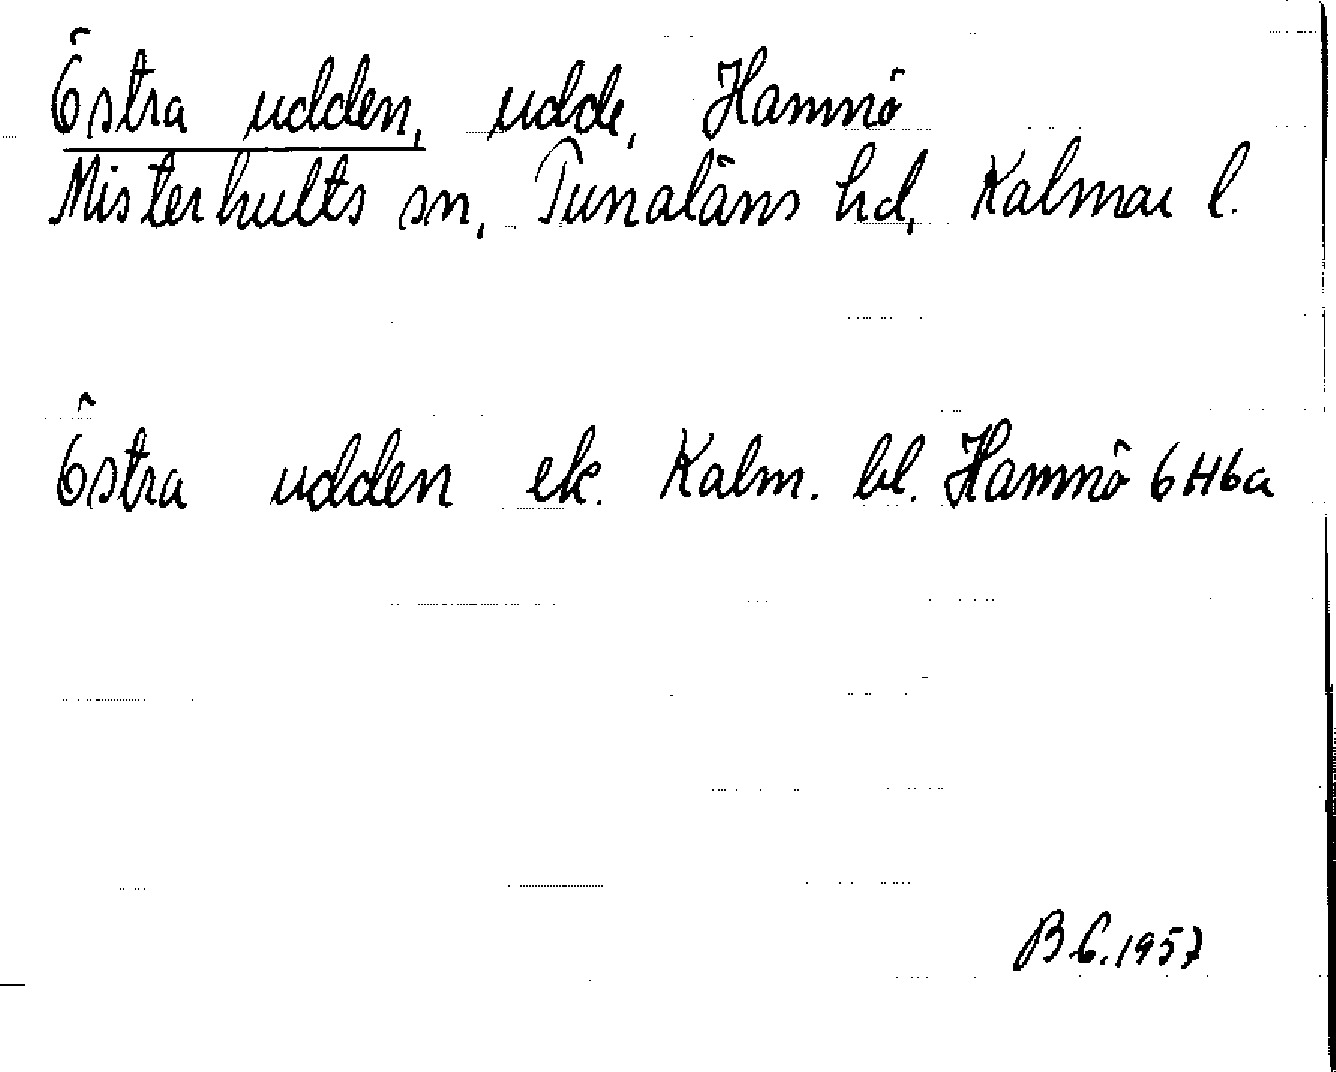 Östra udden, udde, Hamnö
Misterhults sn, Tunaläns hd, Kalmar l.
Östra udden ek. Kalm. bl. Hamnö 6H6a
B G. 1957